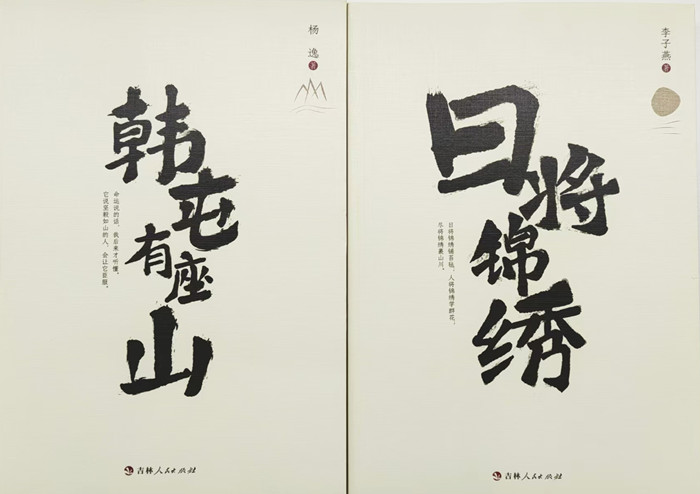 杨逸 著
韩屯有座山
命运说的话，我后来才听懂，
它说坚毅如山的人，会让它臣服。
吉林人民出版社
李子燕 著
日将锦绣
日将锦绣铺苔砌，人将锦绣学群花。
尽将锦绣裹山川。
吉林人民出版社